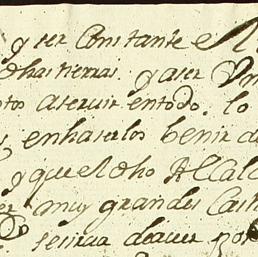 y ser Constante e
dhas tierras y aser Un
tos aseruir entodo. lo
enhaserlos benir a
y que el dho Alcal
muy grandes Cas
seruia deauer por